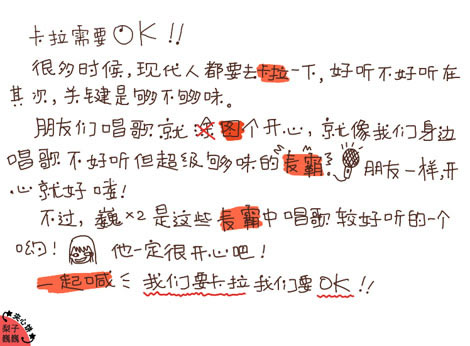 卡拉需要OK!!
很多时候,现代人都要去卡拉一下,好听不好听在
其次,关键是够不够味。
朋友们唱歌就图个开心,就像我们身边
唱歌不好听但超级够味的麦霸朋友一样,开
心就好喽!
不过,巍×2是这些麦霸中唱歌较好听的一个
哟! 他一定很开心吧!
一起喊 我们要卡拉我们要OK!!
夹心饼
梨子
巍巍